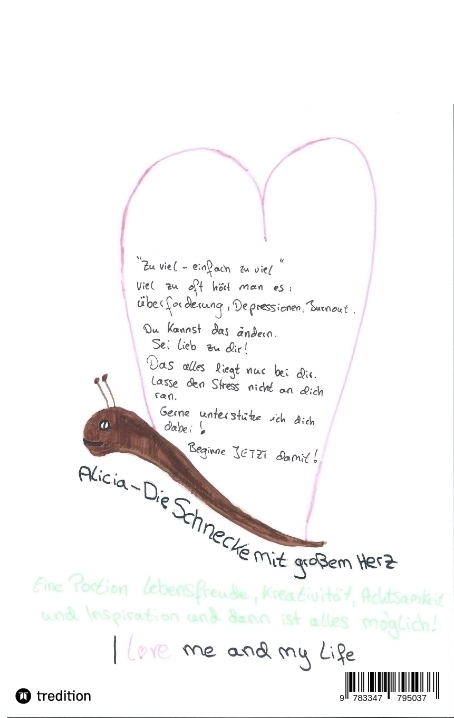 "Zu viel - einfach zu viel"
viel zu oft hört man es:
überforderung, Depressionen, Burnout.
Du kannst das ändern.
Sei lieb zu dir!
Das alles liegt nur bei dir.
Lasse den Stress nicht an dich
ran.
Gerne unterstütze ich dich
dabei!
Beginne JETZT damit!
Alicia - Die Schnecke mit großem Herz
Eine Portion Lebensfreude, Kreativität, Achtsamkeit
und Inspiration und dann ist alles möglich!
I Love me and my Life
tredition
9 783347 795037